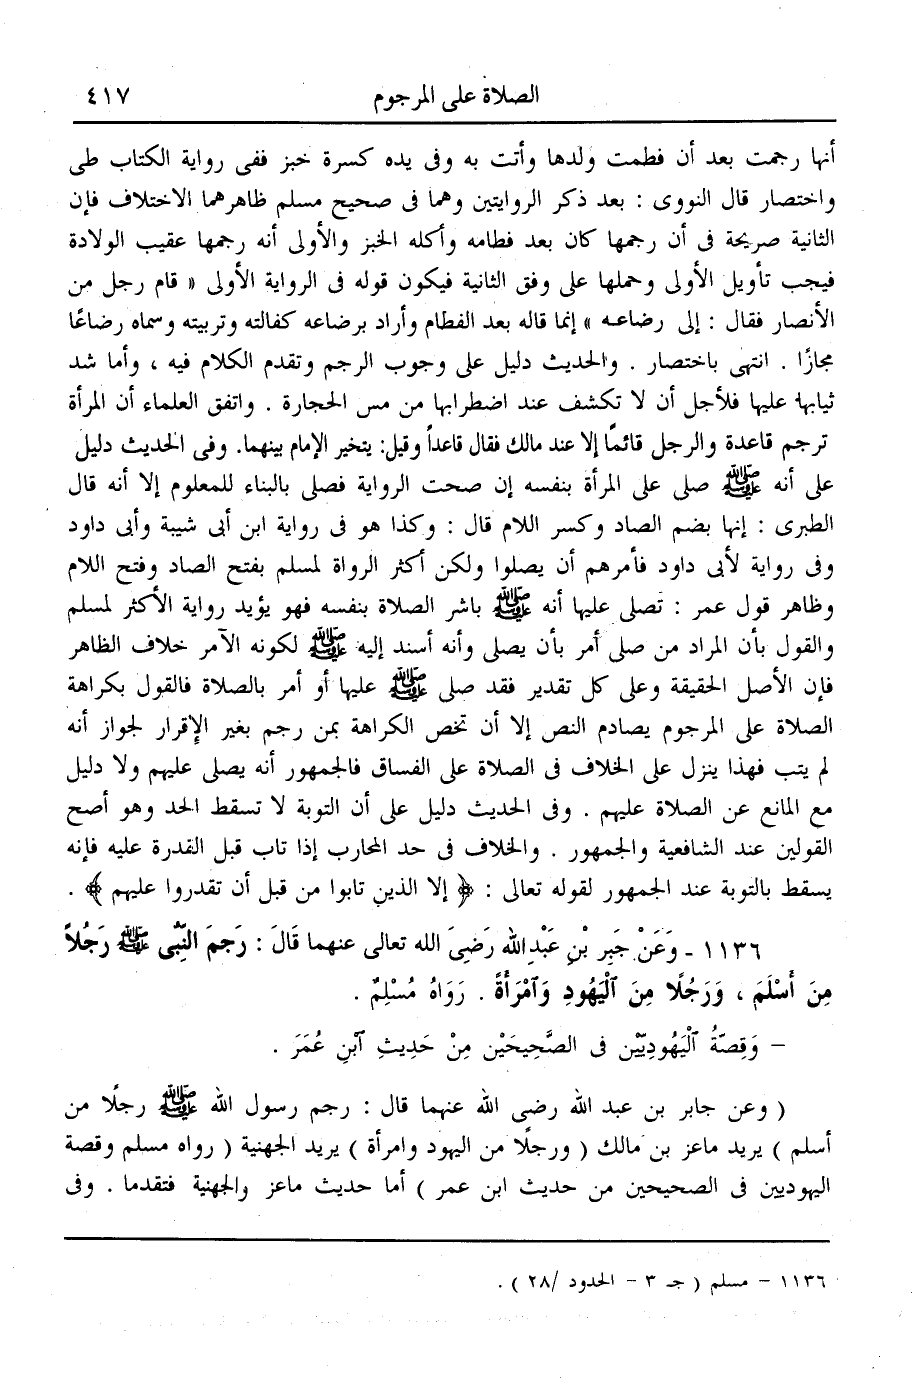 الصلاة على المرجوم ٤١٧
أنها رجمت بعد أن فطمت ولدها وأتت به وفى يده كسرة خبز ففى رواية الكتاب طى
واختصار قال النووى : بعد ذكر الروايتين وهما فى صحيح مسلم ظاهرهما الاختلاف فإن
الثانية صريحة فى أن رجمها كان بعد فطامه وأكله الخبز والأولى أنه رجمها عقيب الولادة
فيجب تأويل الأولى وحملها على وفق الثانية فيكون قوله فى الرواية الأولى « قام رجل من
الأنصار فقال : إلى رضاعه » إنما قاله بعد الفطام وأراد برضاعه كفالته وتربيته وسماه رضاعًا
مجازًا . انتهى باختصار . والحديث دليل على وجوب الرجم وتقدم الكلام فيه ، وأما شد
ثيابها عليها فلأجل أن لا تكشف عند اضطرابها من مس الحجارة . واتفق العلماء أن المرأة
ترجم قاعدة والرجل قائمًا إلا عند مالك فقال قاعداً وقيل: يتخير الإمام بينهما. وفى الحديث دليل
على أنه ﷺ صلى على المرأة بنفسه إن صحت الرواية فصلى بالبناء للمعلوم إلا أنه قال
الطبرى : إنها بضم الصاد وكسر اللام قال : وكذا هو فى رواية ابن أبى شيبة وأبى داود
وفى رواية لأبى داود فأمرهم أن يصلوا ولكن أكثر الرواة لمسلم بفتح الصاد وفتح اللام
وظاهر قول عمر : تصلى عليها أنه ﷺ باشر الصلاة بنفسه فهو يؤيد رواية الأكثر لمسلم
والقول بأن المراد من صلى أمر بأن يصلى وأنه أسند إليه ﷺ لكونه الآمر خلاف الظاهر
فإن الأصل الحقيقة وعلى كل تقدير فقد صلى ﷺ عليها أو أمر بالصلاة فالقول بكراهة
الصلاة على المرجوم يصادم النص إلا أن تخص الكراهة بمن رجم بغير الإقرار لجواز أنه
لم يتب فهذا ينزل على الخلاف فى الصلاة على الفساق فالجمهور أنه يصلى عليهم ولا دليل
مع المانع عن الصلاة عليهم . وفى الحديث دليل على أن التوبة لا تسقط الحد وهو أصح
القولين عند الشافعية والجمهور . والخلاف فى حد المحارب إذا تاب قبل القدرة عليه فإنه
يسقط بالتوبة عند الجمهور لقوله تعالى : ﴿ إلا الذين تابوا من قبل أن تقدروا عليهم ﴾ .
١١٣٦ - وَعَنْ جَبِرِ بْنِ عَبْدِ اللهِ رَضِىَ الله تعالى عنهما قَالَ : رَجَمَ النَّبِى ﷺ رَجُلاً
مِنَ أَسْلَمَ ، وَرَجُلًا مِنَ ٱلْيَهُودِ وَٱمْرَأَةً . رَوَاهُ مُسْلِمٌ .
- وَقِصَّةُ ٱلْيَهُودِيَّيْنِ فى الصَّحِيحَيْن مِنْ حَدِيثِ ٱبْنِ عُمَرَ .
( وعن جابر بن عبد الله رضى الله عنهما قال : رجم رسول الله ﷺ رجلًا من
أسلم ) يريد ماعز بن مالك ( ورجلًا من اليهود وامرأة ) يريد الجهنية ( رواه مسلم وقصة
اليهوديين فى الصحيحين من حديث ابن عمر ) أما حديث ماعز والجهنية فتقدما . وفى
١١٣٦ - مسلم ( جـ ٣ - الحدود /٢٨ ) .